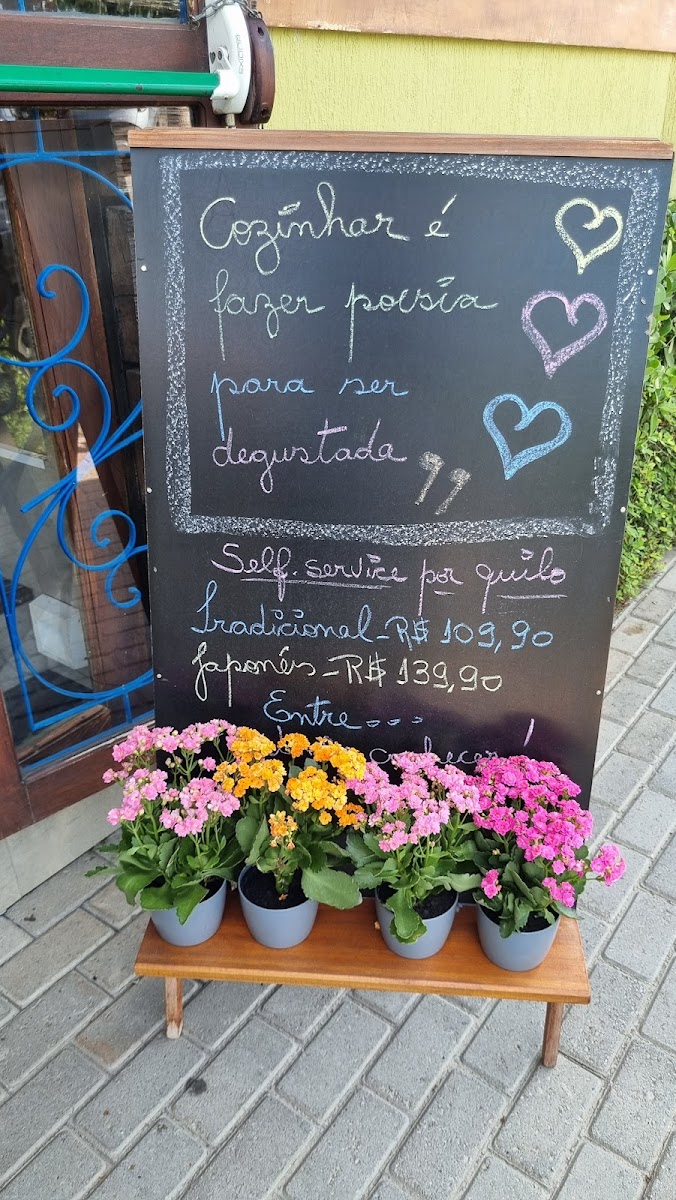 Cozinhar é
fazer poesia
para ser
degustada ”
Self. service por quilo
Tradicional - R$ 109,90
Japonês - R$ 139,90
Entre...
conhecer!